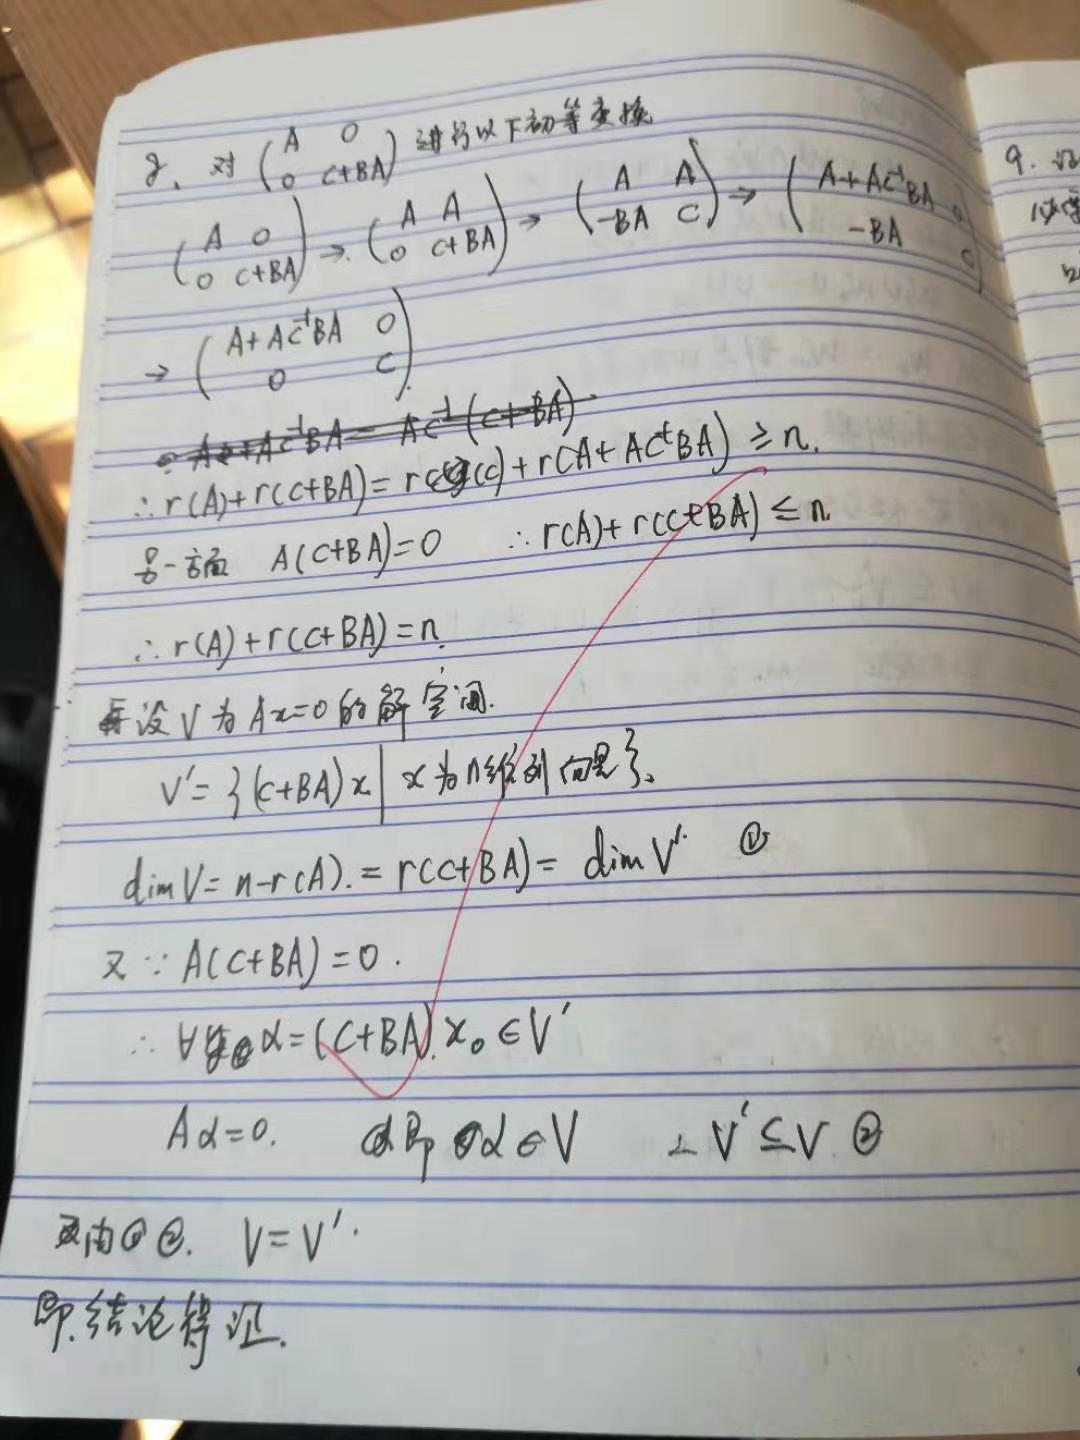 8、对 (A 0 / 0 C+BA) 进行以下初等变换
(A 0 / 0 C+BA) → (A A / 0 C+BA) → (A A / -BA C) → (A+AC⁻¹BA 0 / -BA C)
→ (A+AC⁻¹BA 0 / 0 C)
∴ r(A)+r(C+BA)=r(C)+r(A+AC⁻¹BA) ≥ n.
另一方面 A(C+BA)=0 ∴ r(A)+r(C+BA) ≤ n
∴ r(A)+r(C+BA)=n.
设 V 为 Ax=0 的解空间.
V'={(C+BA)x | x为n维列向量}.
dimV=n-r(A).=r(C+BA)=dimV'. ①
又∵ A(C+BA)=0.
∴ ∀ α=(C+BA).x₀∈V'
Aα=0. 即 α∈V ∴ V'⊆V ②
由①②. V=V'.
即.结论得证.
9.